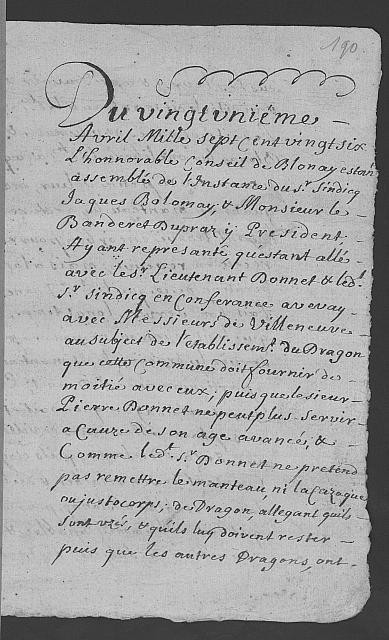 190.
Du vingt vnième
Avril Mille sept Cent vingt six
L'honnorable Conseil de Blonay estan
assemblé de l'Instance du Sr. Sindicq
Jaques Bolomay, & Monsieur le
Banderet Dupraz ÿ President.
Ayant represanté qu'estant allé
avec le Sr. Lieutenant Bonnet & led.t
Sr. Sindicq en Conferance a vevay
avec Messieurs de Villeneuve
au subject de l'etablissem.t du Dragon
que cette Commune doit fournir de
moitié avec eux; puis que le sieur
Pierre Bonnet ne peut plus servir
a Cauze de son age avancé, &
Comme led.t Sr. Bonnet ne pretend
pas remettre le manteau ni la Cazaque
ou justocorps; de Dragon, allegant quils
sont vzés, & qu'ils luy doivent rester
puis que les autres Dragons, ont